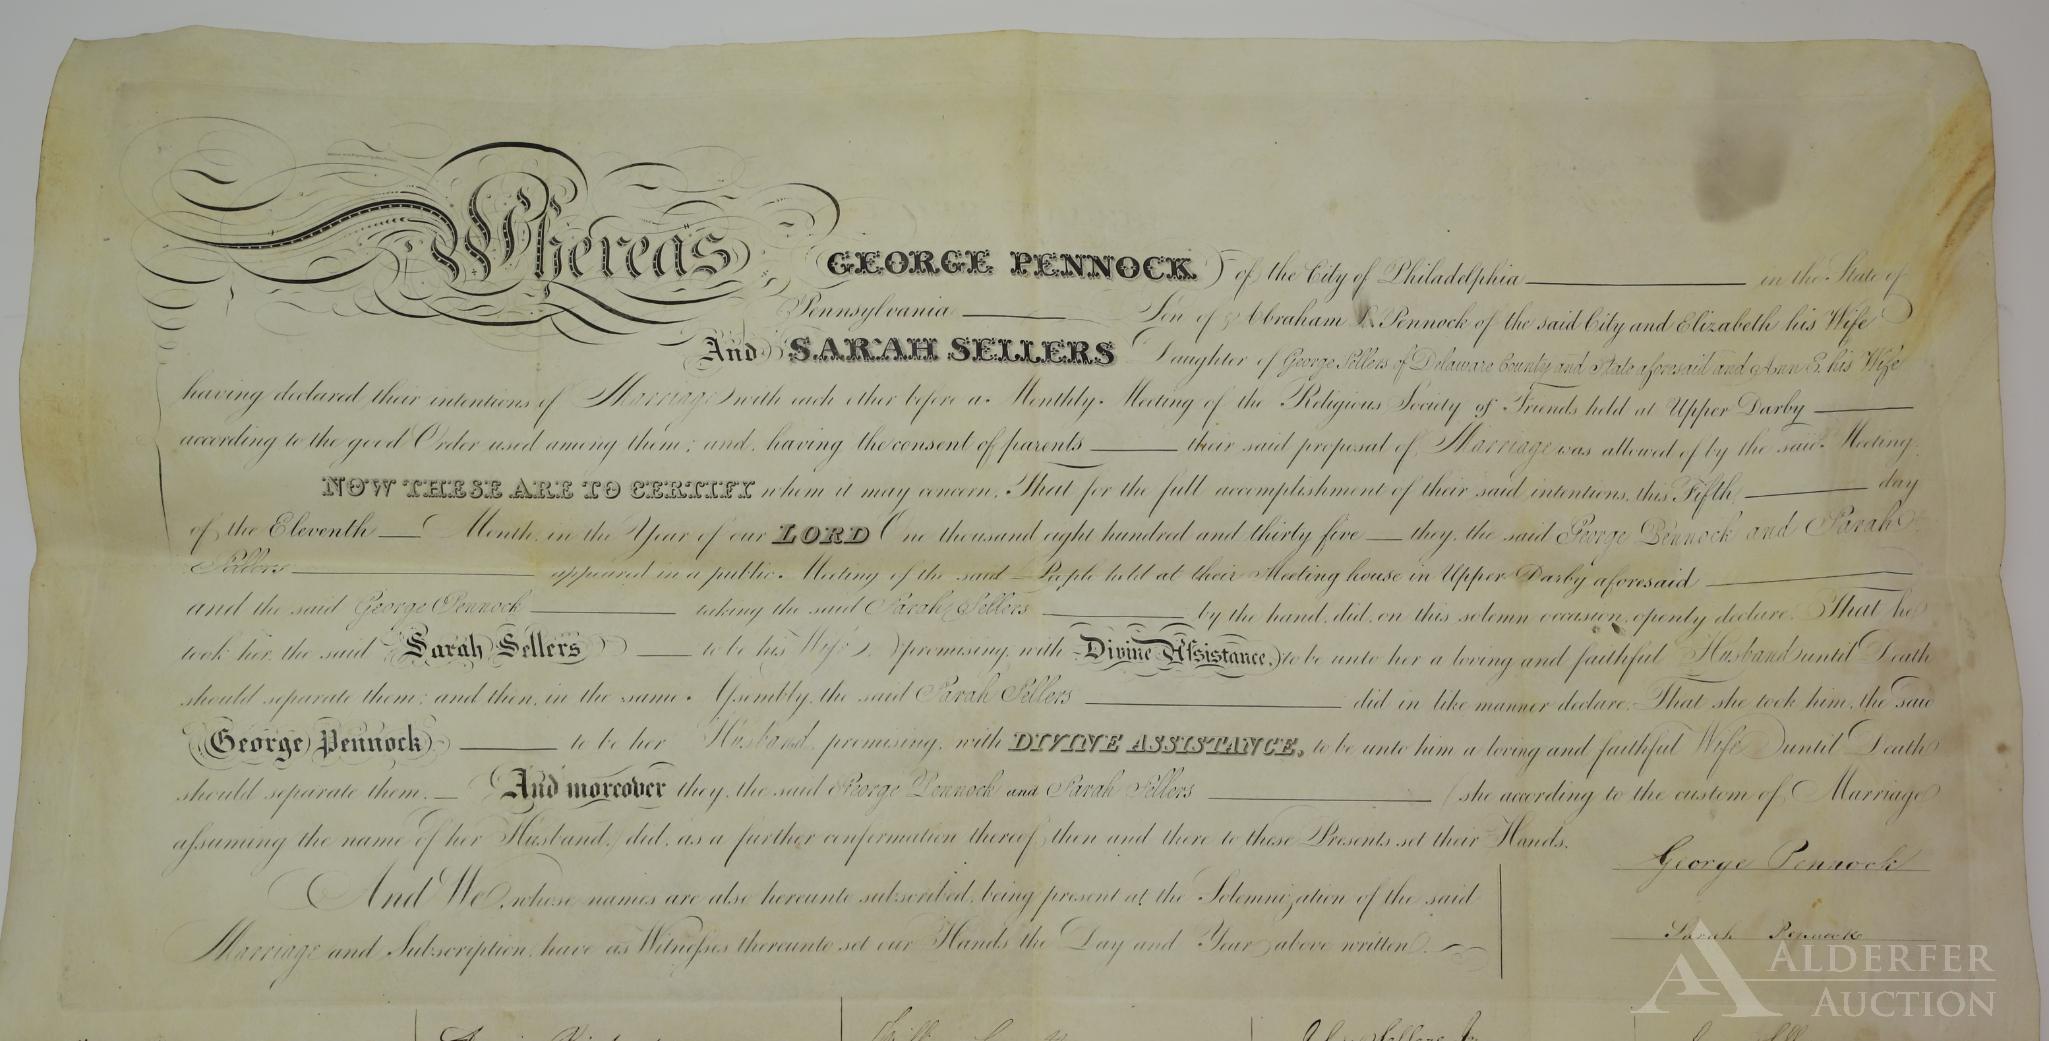 Whereas GEORGE PENNOCK of the City of Philadelphia in the State of
Pennsylvania Son of Abraham L Pennock of the said City and Elizabeth his Wife
And SARAH SELLERS Daughter of George Sellers of Delaware County and State aforesaid and Ann E. his Wife
having declared their intentions of Marriage with each other before a Monthly Meeting of the Religious Society of Friends held at Upper Darby
according to the good Order used among them; and, having the consent of parents their said proposal of Marriage was allowed of by the said Meeting.
NOW THESE ARE TO CERTIFY whom it may concern, That for the full accomplishment of their said intentions, this Fifth day
of the Eleventh Month, in the Year of our LORD One thousand eight hundred and thirty five they, the said George Pennock and Sarah
Sellers appeared in a public Meeting of the said People held at their Meeting house in Upper Darby aforesaid
and the said George Pennock taking the said Sarah Sellers by the hand, did, on this solemn occasion, openly declare, That he
took her, the said Sarah Sellers to be his Wife, promising, with Divine Assistance, to be unto her a loving and faithful Husband until Death
should separate them; and then, in the same Assembly, the said Sarah Sellers did in like manner declare, That she took him, the said
George Pennock to be her Husband, promising, with DIVINE ASSISTANCE, to be unto him a loving and faithful Wife until Death
should separate them. And moreover they, the said George Pennock and Sarah Sellers (she according to the custom of Marriage
assuming the name of her Husband,) did, as a further confirmation thereof, then and there to these Presents set their Hands.
George Pennock
And We, whose names are also hereunto subscribed, being present at the Solemnization of the said
Sarah Pennock
Marriage and Subscription, have as Witnesses thereunto set our Hands the Day and Year above written.
ALDERFER
AUCTION